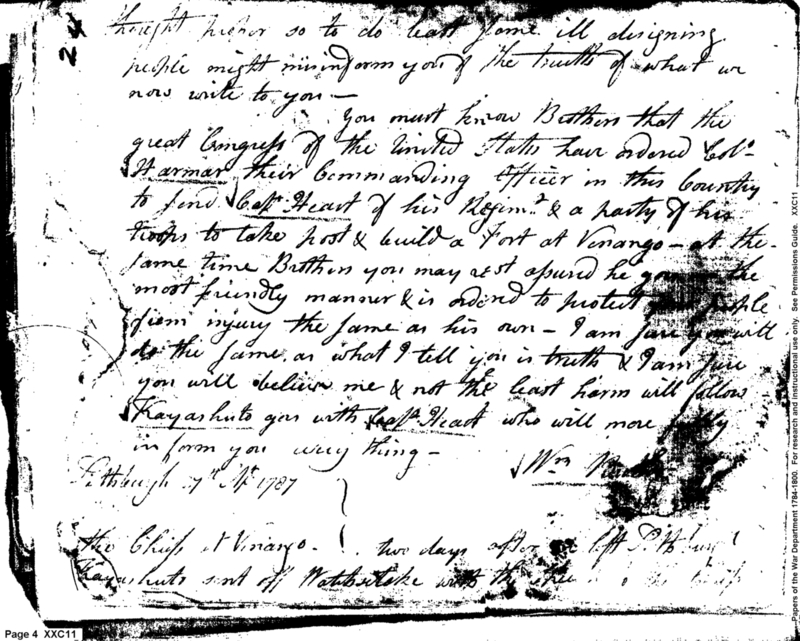 24
thought proper so to do least some ill designing
people might misinform you of the truth of what we
now write to you —
You must know Brothers that the
great Congress of the United States have ordered Colo.
Harmar their Commanding Officer in this Country
to send Capt. Heart of his Regimt. & a party of his
troops to take post & build a Fort at Venango — at the
same time Brothers you may rest assured he goes the
most friendly manner & is ordered to protect people
from injury the same as his own — I am sure you will
do the same, as what I tell you is truth & I am sure
you will believe me & not the least harm will follow
Kayashuto goes with Capt. Heart who will more fully
inform you every thing —
Wm
Pittsburgh 1787
the Chiefs at Venango — two days after left Pittsburgh
Kayashuto sent off with the
Page 4 XXC11
Papers of the War Department 1784-1800. For research and instructional use only. See Permissions Guide. XXC11